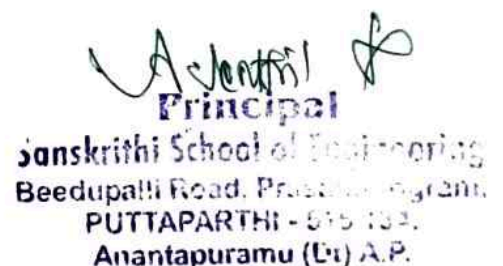 Principal
Sanskrithi School of Engineering
Beedupalli Road,
PUTTAPARTHI -
Anantapuramu (Dt) A.P.